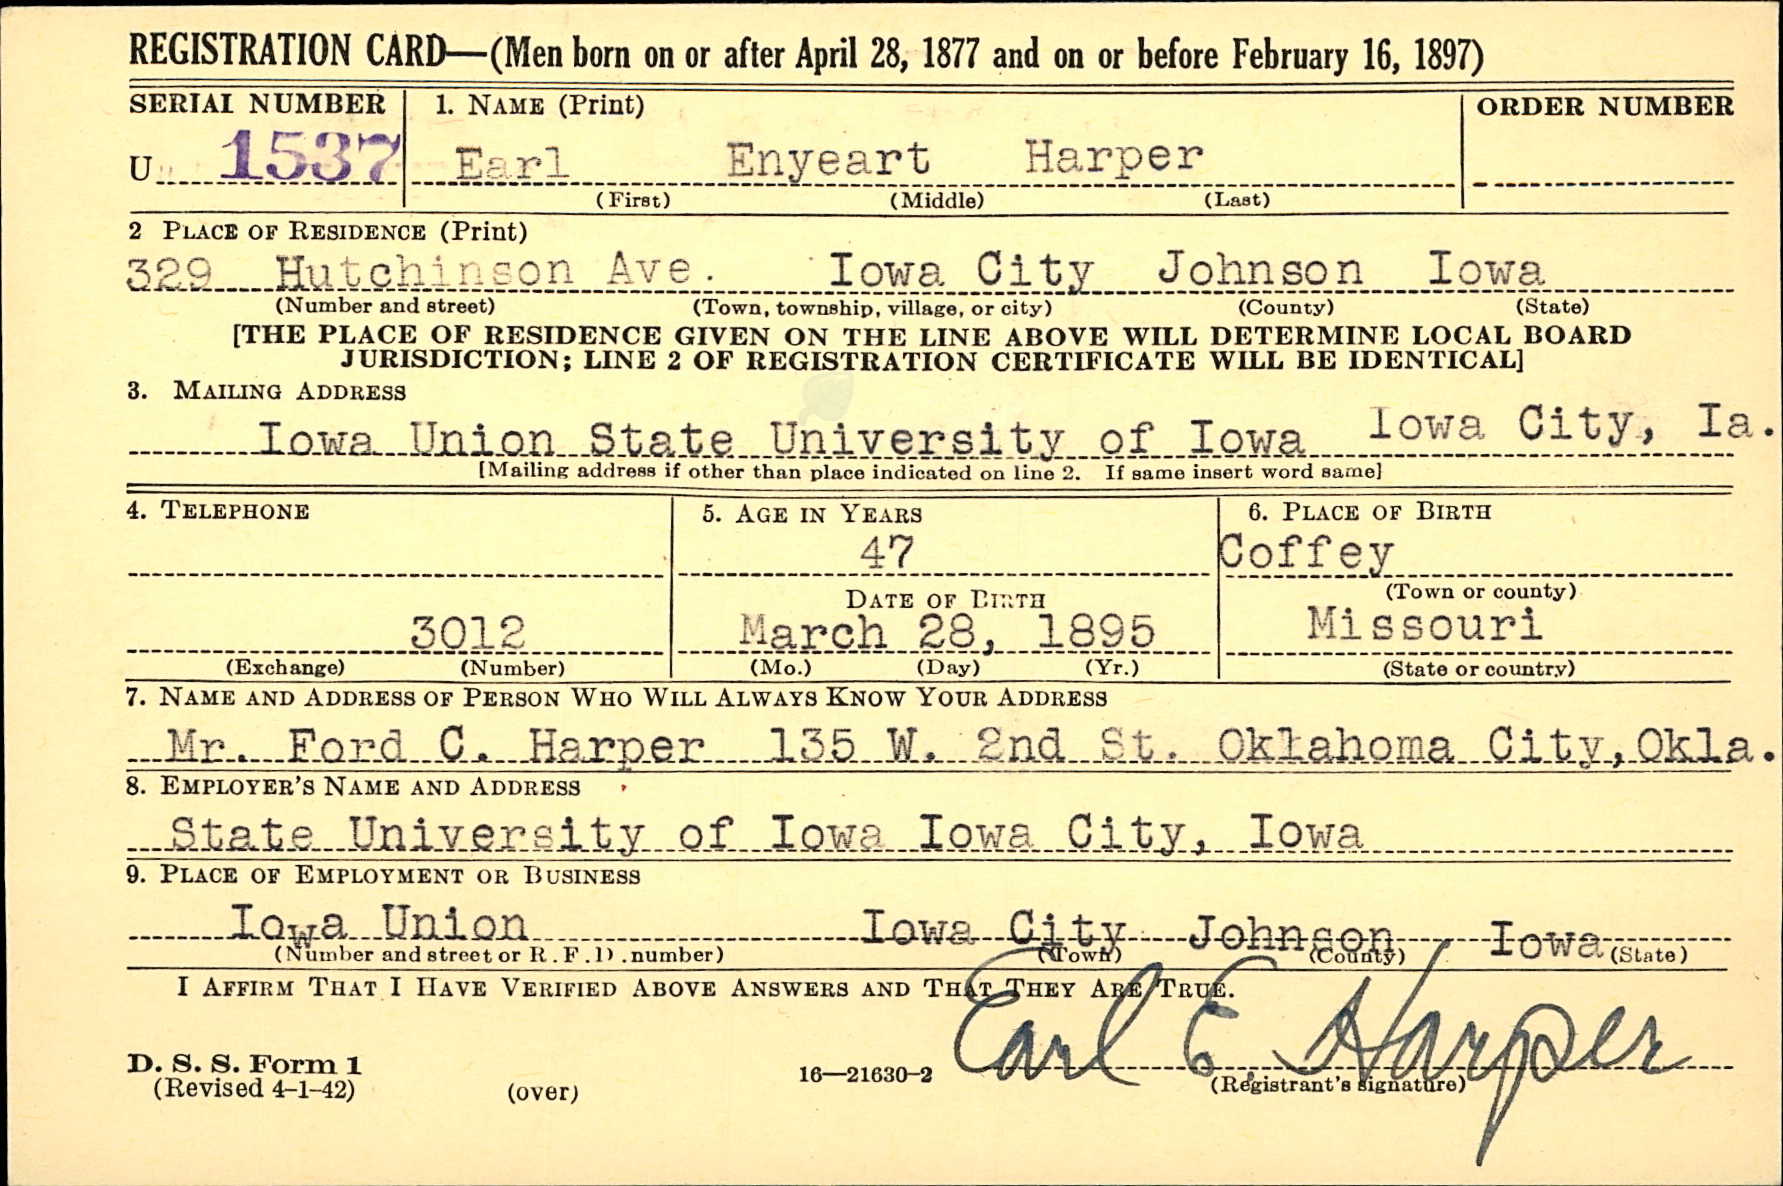 REGISTRATION CARD—(Men born on or after April 28, 1877 and on or before February 16, 1897)
SERIAL NUMBER 1. NAME (Print) ORDER NUMBER
U 1537 Earl Enyeart Harper
(First) (Middle) (Last)
2 PLACE OF RESIDENCE (Print)
329 Hutchinson Ave. Iowa City Johnson Iowa
(Number and street) (Town, township, village, or city) (County) (State)
[THE PLACE OF RESIDENCE GIVEN ON THE LINE ABOVE WILL DETERMINE LOCAL BOARD
JURISDICTION; LINE 2 OF REGISTRATION CERTIFICATE WILL BE IDENTICAL]
3. MAILING ADDRESS
Iowa Union State University of Iowa Iowa City, Ia.
[Mailing address if other than place indicated on line 2. If same insert word same]
4. TELEPHONE 5. AGE IN YEARS 6. PLACE OF BIRTH
47 Coffey
DATE OF BIRTH (Town or county)
3012 March 28, 1895 Missouri
(Exchange) (Number) (Mo.) (Day) (Yr.) (State or country)
7. NAME AND ADDRESS OF PERSON WHO WILL ALWAYS KNOW YOUR ADDRESS
Mr. Ford C. Harper 135 W. 2nd St. Oklahoma City, Okla.
8. EMPLOYER'S NAME AND ADDRESS
State University of Iowa Iowa City, Iowa
9. PLACE OF EMPLOYMENT OR BUSINESS
Iowa Union Iowa City Johnson Iowa
(Number and street or R. F. D. number) (Town) (County) (State)
I AFFIRM THAT I HAVE VERIFIED ABOVE ANSWERS AND THAT THEY ARE TRUE.
Earl E. Harper
D. S. S. Form 1
(Revised 4-1-42) (over) 16—21630-2 (Registrant's signature)